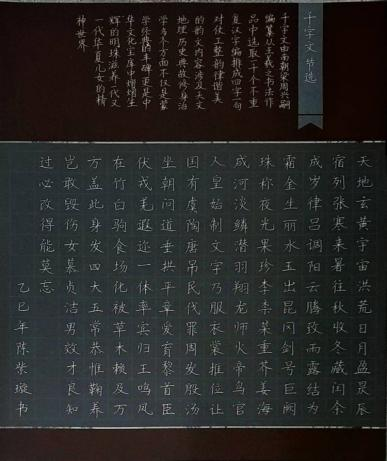 千字文 节选
千字文由南朝梁周兴嗣
编纂从王羲之书法作
品中选取一千个不重
复汉字编排成四字一句
对仗工整韵律谐美
的韵文内容涉及天文
地理历史典故修身治
学等多个方面不仅是蒙
学经典的丰碑更是中
华文化宝库中熠熠生
辉的明珠滋养一代又
一代华夏儿女的精
神世界
天地玄黄宇宙洪荒日月盈昃辰
宿列张寒来暑往秋收冬藏闰余
成岁律吕调阳云腾致雨露结为
霜金生丽水玉出昆冈剑号巨阙
珠称夜光果珍李柰菜重芥姜海
咸河淡鳞潜羽翔龙师火帝鸟官
人皇始制文字乃服衣裳推位让
国有虞陶唐吊民伐罪周发殷汤
坐朝问道垂拱平章爱育黎首臣
伏戎羌遐迩一体率宾归王鸣凤
在竹白驹食场化被草木赖及万
方盖此身发四大五常恭惟鞠养
岂敢毁伤女慕贞洁男效才良知
过必改得能莫忘
乙巳年陈紫璇书